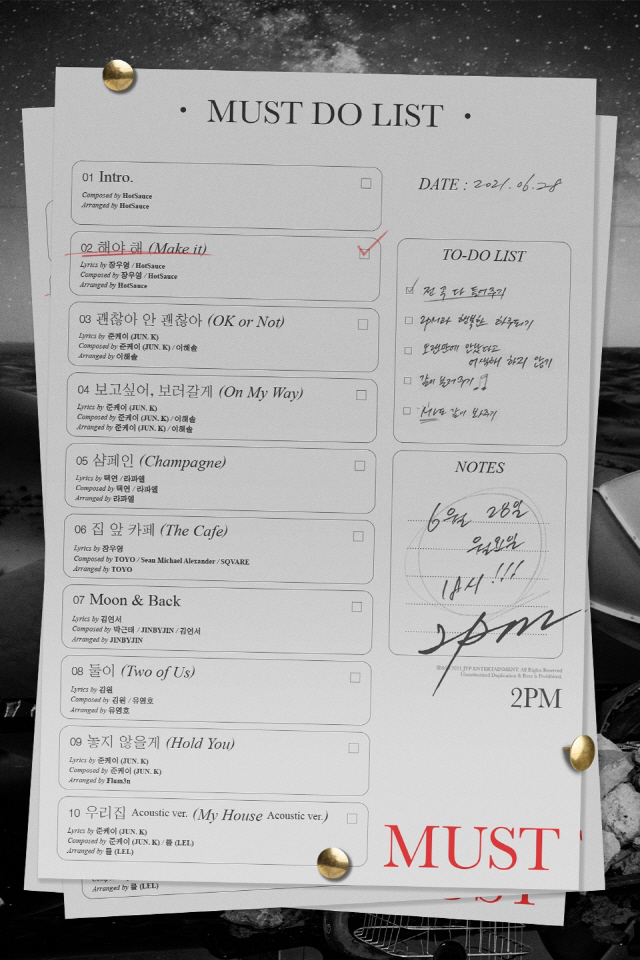 • MUST DO LIST •
01 Intro.
Composed by HotSauce
Arranged by HotSauce
02 해야 해 (Make it)
Lyrics by 장우영 / HotSauce
Composed by 장우영 / HotSauce
Arranged by HotSauce
03 괜찮아 안 괜찮아 (OK or Not)
Lyrics by 준케이 (JUN. K)
Composed by 준케이 (JUN. K) / 이해솔
Arranged by 이해솔
04 보고싶어, 보러갈게 (On My Way)
Lyrics by 준케이 (JUN. K)
Composed by 준케이 (JUN. K) / 이해솔
Arranged by 준케이 (JUN. K) / 이해솔
05 샴페인 (Champagne)
Lyrics by 택연 / 라파엘
Composed by 택연 / 라파엘
Arranged by 라파엘
06 집 앞 카페 (The Cafe)
Lyrics by 장우영
Composed by TOYO / Sean Michael Alexander / SQVARE
Arranged by TOYO
07 Moon & Back
Lyrics by 김연서
Composed by 박근태 / JINBYJIN / 김연서
Arranged by JINBYJIN
08 둘이 (Two of Us)
Lyrics by 김원
Composed by 김원 / 유영호
Arranged by 유영호
09 놓지 않을게 (Hold You)
Lyrics by 준케이 (JUN. K)
Composed by 준케이 (JUN. K)
Arranged by Flum3n
10 우리집 Acoustic ver. (My House Acoustic ver.)
Lyrics by 준케이 (JUN. K)
Composed by 준케이 (JUN. K) / 믈 (LEL)
Arranged by 믈 (LEL)
DATE : 2021. 06. 28
TO-DO LIST
전 곡 다 들어주기
2PM과 행복한 하루되기
오랜만에 만났다고
어색해 하지 않기
같이 불러주기
MV도 같이 봐주기
NOTES
6월 28일
월요일
1AM !!!
2pm
JYP ENTERTAINMENT. All Rights Reserved
Unauthorized Duplication & Error is Prohibited.
2PM
MUST
Arranged by 믈 (LEL)